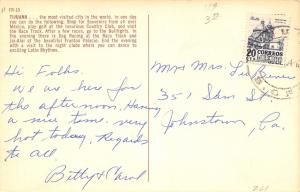 FR-15
TIJUANA ... the most visited city in the world. In one day
you can do the following: Shop for Souvenirs from all over
Mexico, play golf at the luxurious Country Club, and visit
the Race Track. After a few races, go to the Bullfights. In
the evening there is Dog Racing at the Race Track and
Jai-Alai at the beautiful Fronton Palacio. End the evening
with a visit to the night clubs where you can dance to
exciting Latin Rhythms.
Hi Folks.
We are here for
the afternoon, Having
a nice time. very
hot today. Regards
to all.
Betty & Carol
20
CORREOS
Mr & Mrs.
351 Sam St
Johnstown,
Pa.